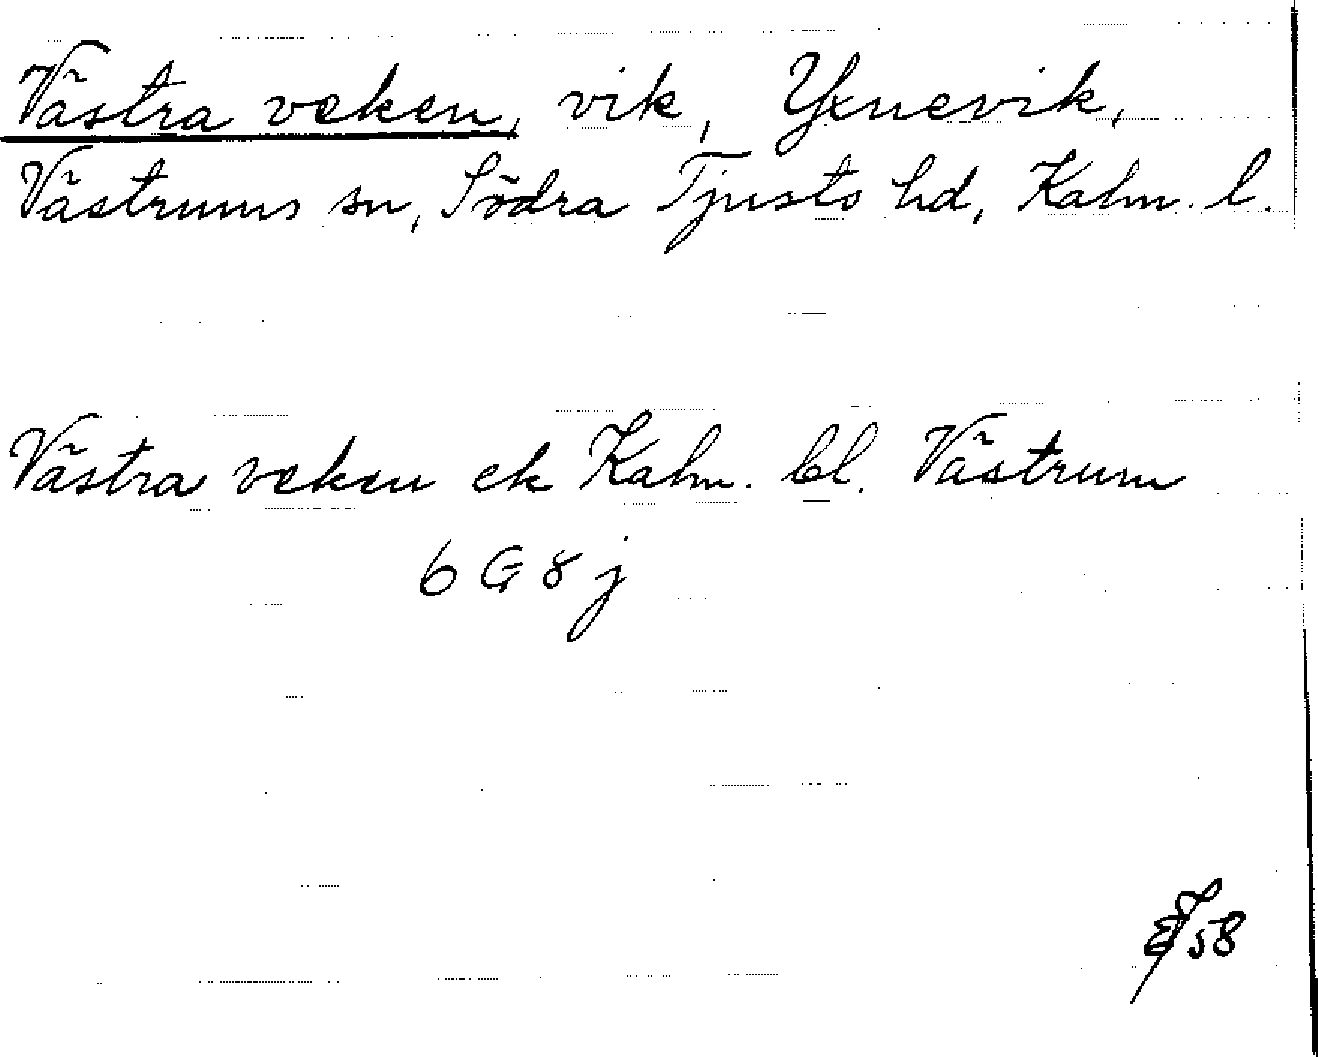 Västra veken, vik, Yxnevik,
Västrums sn, Södra Tjusts hd, Kalm. l.
Västra veken ek Kalm. bl. Västrum
6 G 8 j
58